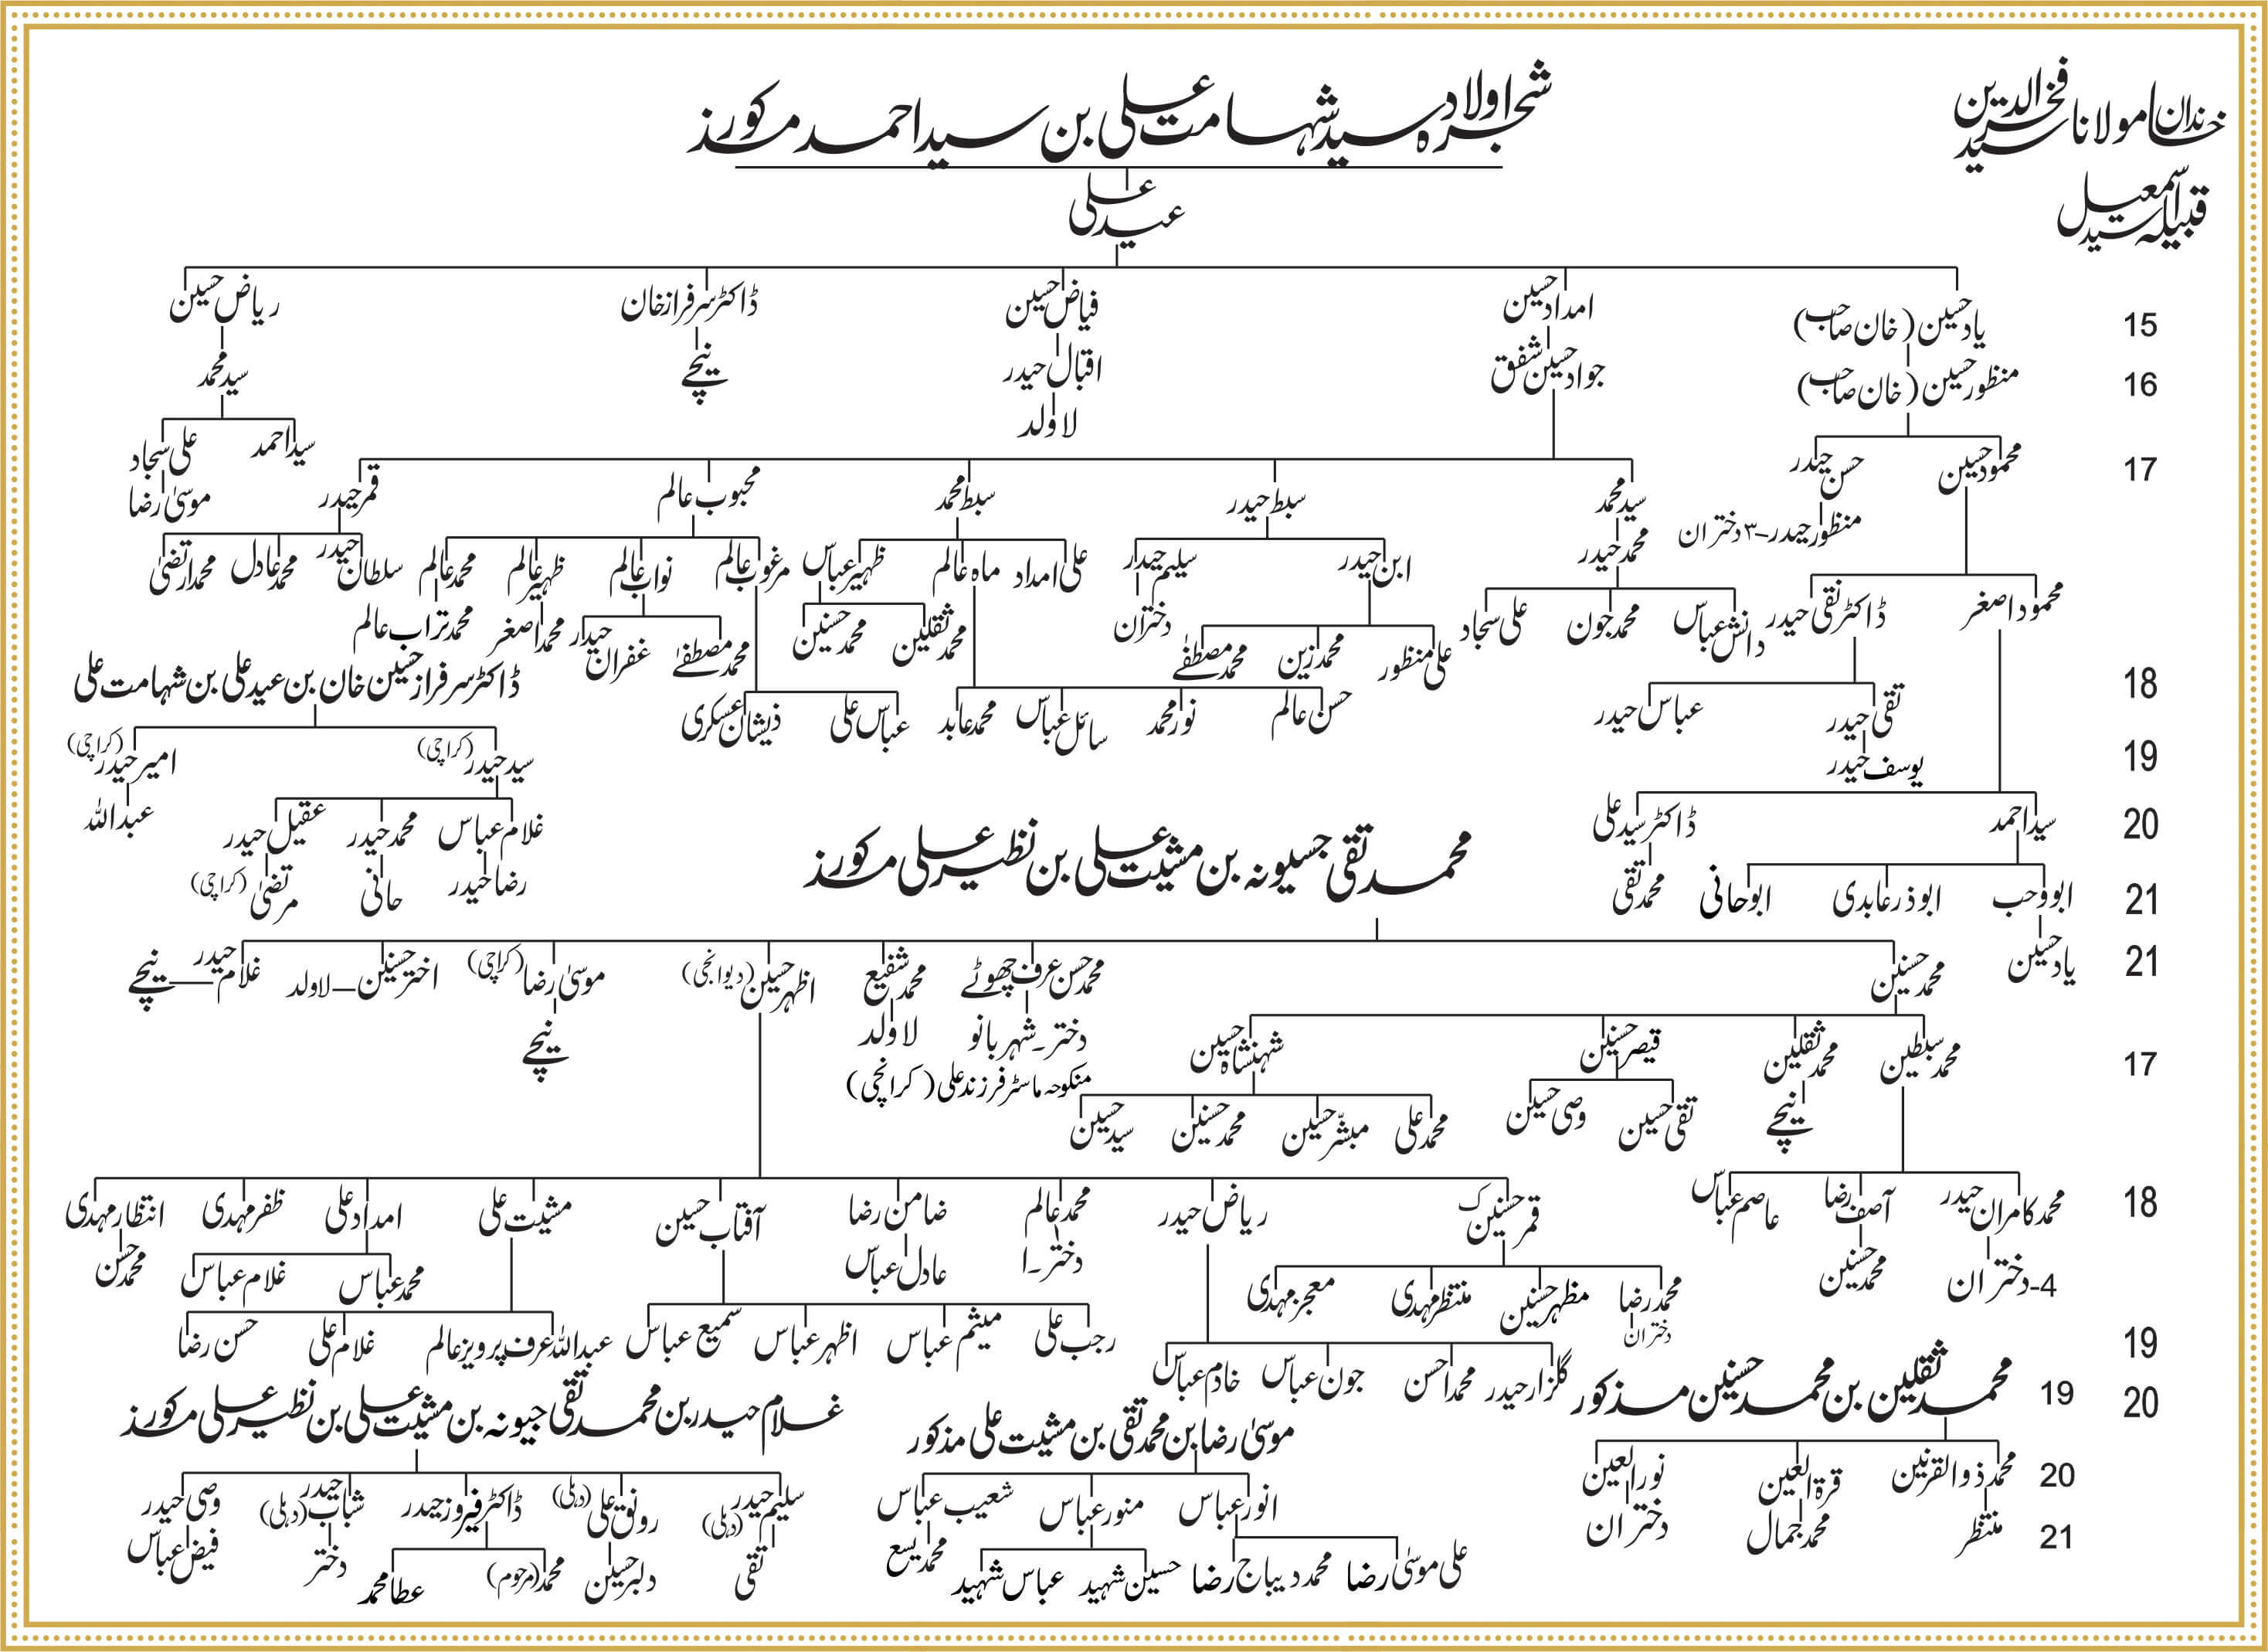 خاندان مولانا سید فخرالدین
قبیلہ سید اسمعیل
شجرہ اولاد سید شہامت علی بن سید احمد مذکور
عید علی
یاد حسین (خان صاحب) امداد حسین فیاض حسین ڈاکٹر سرفراز خان ریاض حسین
15
منظور حسین (خان صاحب) جواد حسین شفق اقبال حیدر نیچے سید محمد
16
لاولد
سید احمد علی سجاد
محمود حسین حسن حیدر
17
سید محمد سبط حیدر سبط محمد محبوب عالم قمر حیدر موسیٰ رضا
منظور حیدر-۳ دختران
محمد حیدر ابن حیدر سلیم حیدر علی امداد ماہ عالم ظہیر عباس مرغوب عالم نواب عالم ظہیر عالم محمد عالم سلطان حیدر محمد عادل محمد ارتضیٰ
محمود اصغر ڈاکٹر نقی حیدر دانش عباس محمد جون علی سجاد دختران محمد ثقلین محمد حسنین محمد اصغر محمد تراب عالم
علی منظور محمد زین محمد مصطفےٰ محمد مصطفےٰ غفران حیدر
ڈاکٹر سرفراز حسین خان بن عید علی بن شہامت علی
18
تقی حیدر عباس حیدر حسن عالم نور محمد سائل عباس محمد عابد عباس علی ذیشان عسکری
یوسف حیدر
19
سید حیدر (کراچی) امیر حیدر (کراچی)
سید احمد ڈاکٹر سید علی
20
غلام عباس محمد حیدر عقیل حیدر عبداللہ
محمد تقی جسیونہ بن مشیت علی بن نظیر علی مذکور
ابووحب ابوذر عابدی ابوحانی محمد تقی
21
رضا حیدر حانی مرتضیٰ (کراچی)
یاد حسین
21
محمد حسنین محمد حسن عرف چھوٹے محمد شفیع اظہر حسین (دیوانجی) موسیٰ رضا (کراچی) اختر حسنین—لاولد غلام حیدر—نیچے
دختر-شہر بانو لاولد نیچے
منکوحہ ماسٹر فرزند علی (کرانچی)
محمد سبطین محمد ثقلین قیصر حسنین شہنشاہ حسین
17
نیچے تقی حسین وصی حسین محمد علی مبشر حسین محمد حسنین سید حسین
محمد کامران حیدر آصف رضا عاصم عباس
18
قمر حسنین ریاض حیدر محمد عالم ضامن رضا آفتاب حسین مشیت علی امداد علی ظفر مہدی انتظار مہدی
4-دختران محمد حسنین دختر-ا عادل عباس محمد عباس غلام عباس محمد حسن
محمد رضا مظہر حسنین منتظر مہدی معجز مہدی
دختران
رجب علی میثم عباس اظہر عباس سمیع عباس عبداللہ عرف پرویز عالم غلام علی حسن رضا
19
گلزار حیدر محمد احسن جون عباس خادم عباس
محمد ثقلین بن محمد حسنین مذکور
19
20
موسیٰ رضا بن محمد تقی بن مشیت علی مذکور
غلام حیدر بن محمد تقی جیونہ بن مشیت علی بن نظیر علی مذکور
محمد ذوالقرنین قرۃ العین نورالعین
20
انور عباس منور عباس شعیب عباس
سلیم حیدر (دہلی) رونق علی (دہلی) ڈاکٹر فیروز حیدر شاب حیدر (دہلی) وصی حیدر
منتظر محمد جمال دختران
21
علی موسیٰ رضا محمد دیباج رضا حسین شہید عباس شہید محمد یسع
تقی دلبر حسین محمد (مرحوم) عطا محمد دختر فیض عباس